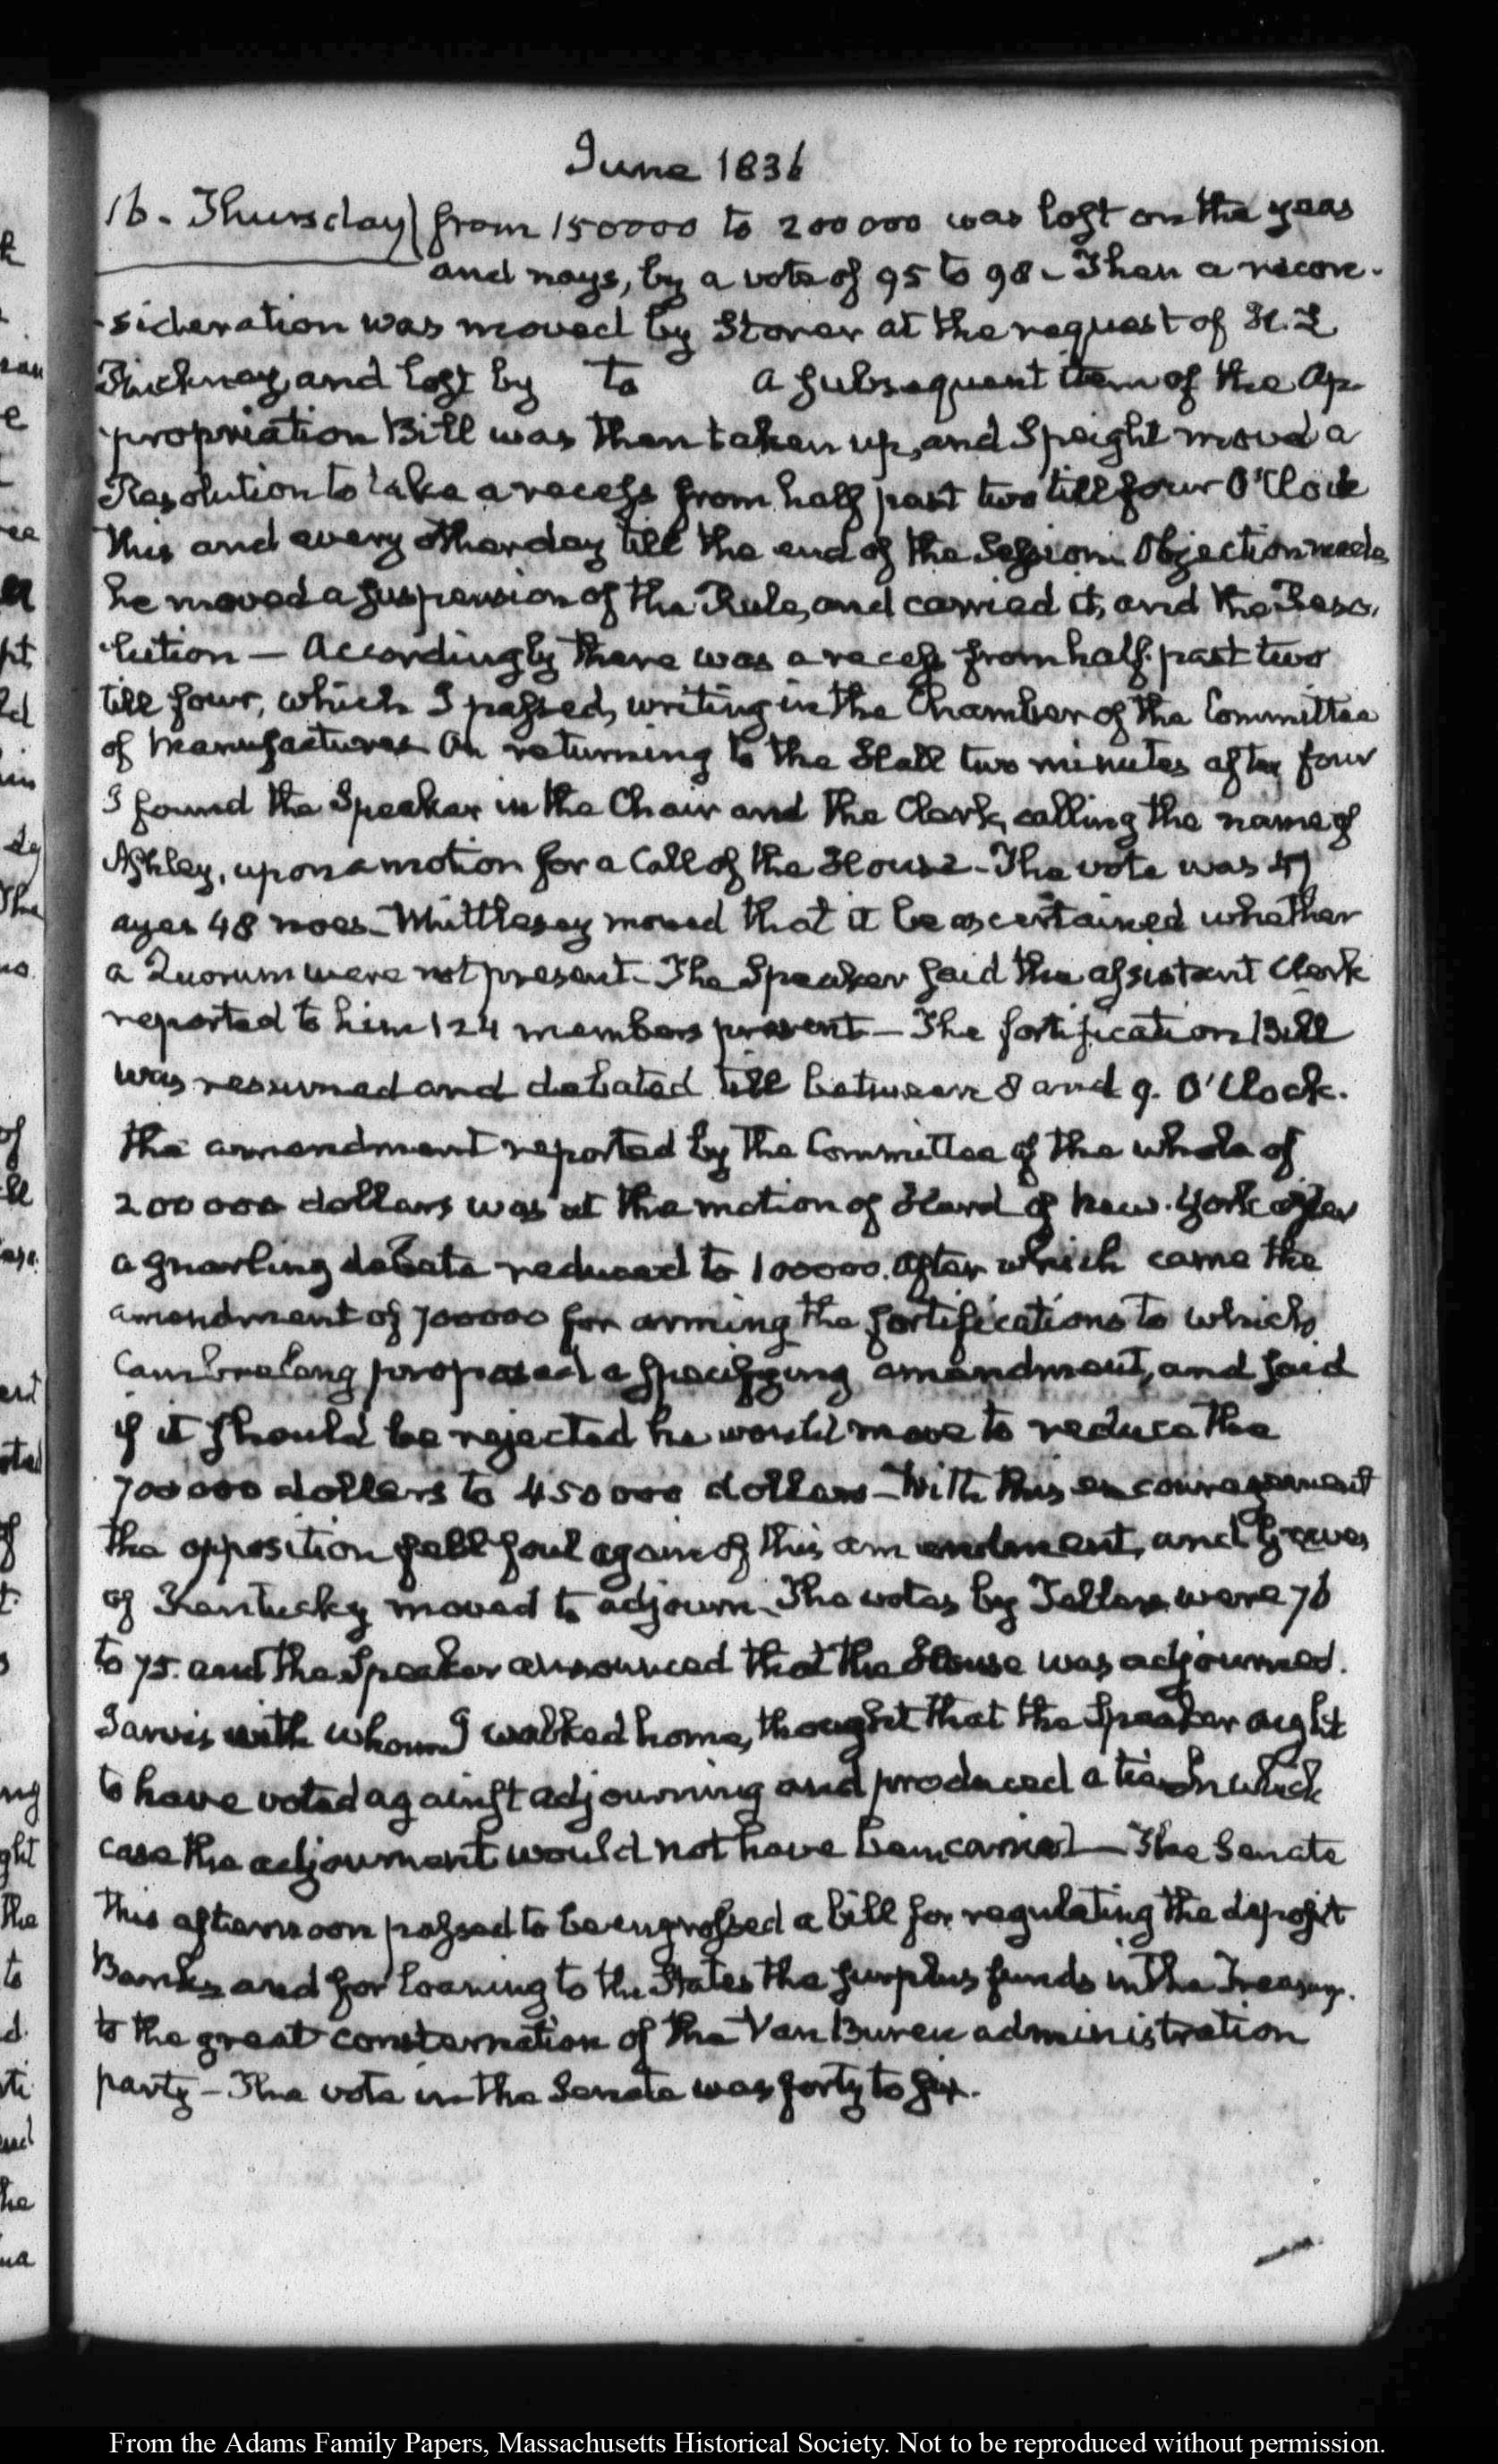 June 1836
16. Thursday) from 150000 to 200000 was lost on the yeas
and nays, by a vote of 95 to 98. Then a recon-
sideration was moved by Storer at the request of H. L
Pinckney, and lost by to a subsequent item of the Ap-
propriation Bill was then taken up, and Speight moved a
Resolution to take a recess from half past two till four O'Clock
this and every other day till the end of the Session. Objection made
he moved a suspension of the Rule, and carried it, and the Reso-
lution — Accordingly there was a recess from half past two
till four, which I passed, writing in the Chamber of the Committee
of Manufactures. On returning to the Hall two minutes after four
I found the Speaker in the Chair and the Clerk, calling the name of
Ashley, upon a motion for a Call of the House - The vote was 47
ayes 48 noes - Whittlesey moved that it be ascertained whether
a Quorum were not present - The Speaker said the assistant Clerk
reported to him 124 members present — The fortification Bill
was resumed and debated till between 8 and 9. O'Clock.
the amendment reported by the Committee of the whole of
200000 dollars was at the motion of Hard of New-York after
a gnarling debate reduced to 100000. After which came the
amendment of 700000 for arming the fortifications to which
Cambreleng proposed a specifying amendment, and said
if it should be rejected he would move to reduce the
700000 dollars to 450000 dollars - With this encouragement
the opposition fell foul again of this amendment, and Graves
of Kentucky moved to adjourn. The votes by Tellers were 76
to 75. and the Speaker announced that the House was adjourned.
Jarvis with whom I walked home, thought that the Speaker ought
to have voted against adjourning and produced a tie in which
case the adjournment would not have been carried — The Senate
this afternoon passed to be engrossed a bill for regulating the deposit
Banks and for loaning to the States the surplus funds in the Treasury.
to the great consternation of the Van Buren administration
party - The vote in the Senate was forty to six.
From the Adams Family Papers, Massachusetts Historical Society. Not to be reproduced without permission.